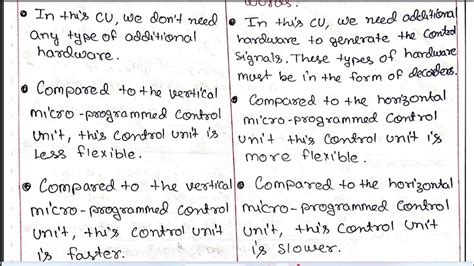 words.
• In this CU, we don't need
any type of additional
hardware.
• Compared to the vertical
micro-programmed control
unit, this control unit is
less flexible.
• Compared to the vertical
micro-programmed control
unit, this control unit
is faster.
• In this CU, we need additional
hardware to generate the control
signals. These types of hardware
must be in the form of decoders.
• Compared to the horizontal
micro-programmed control
unit this control unit is
more flexible.
• Compared to the horizontal
micro-programmed control
unit, this control unit
is slower.